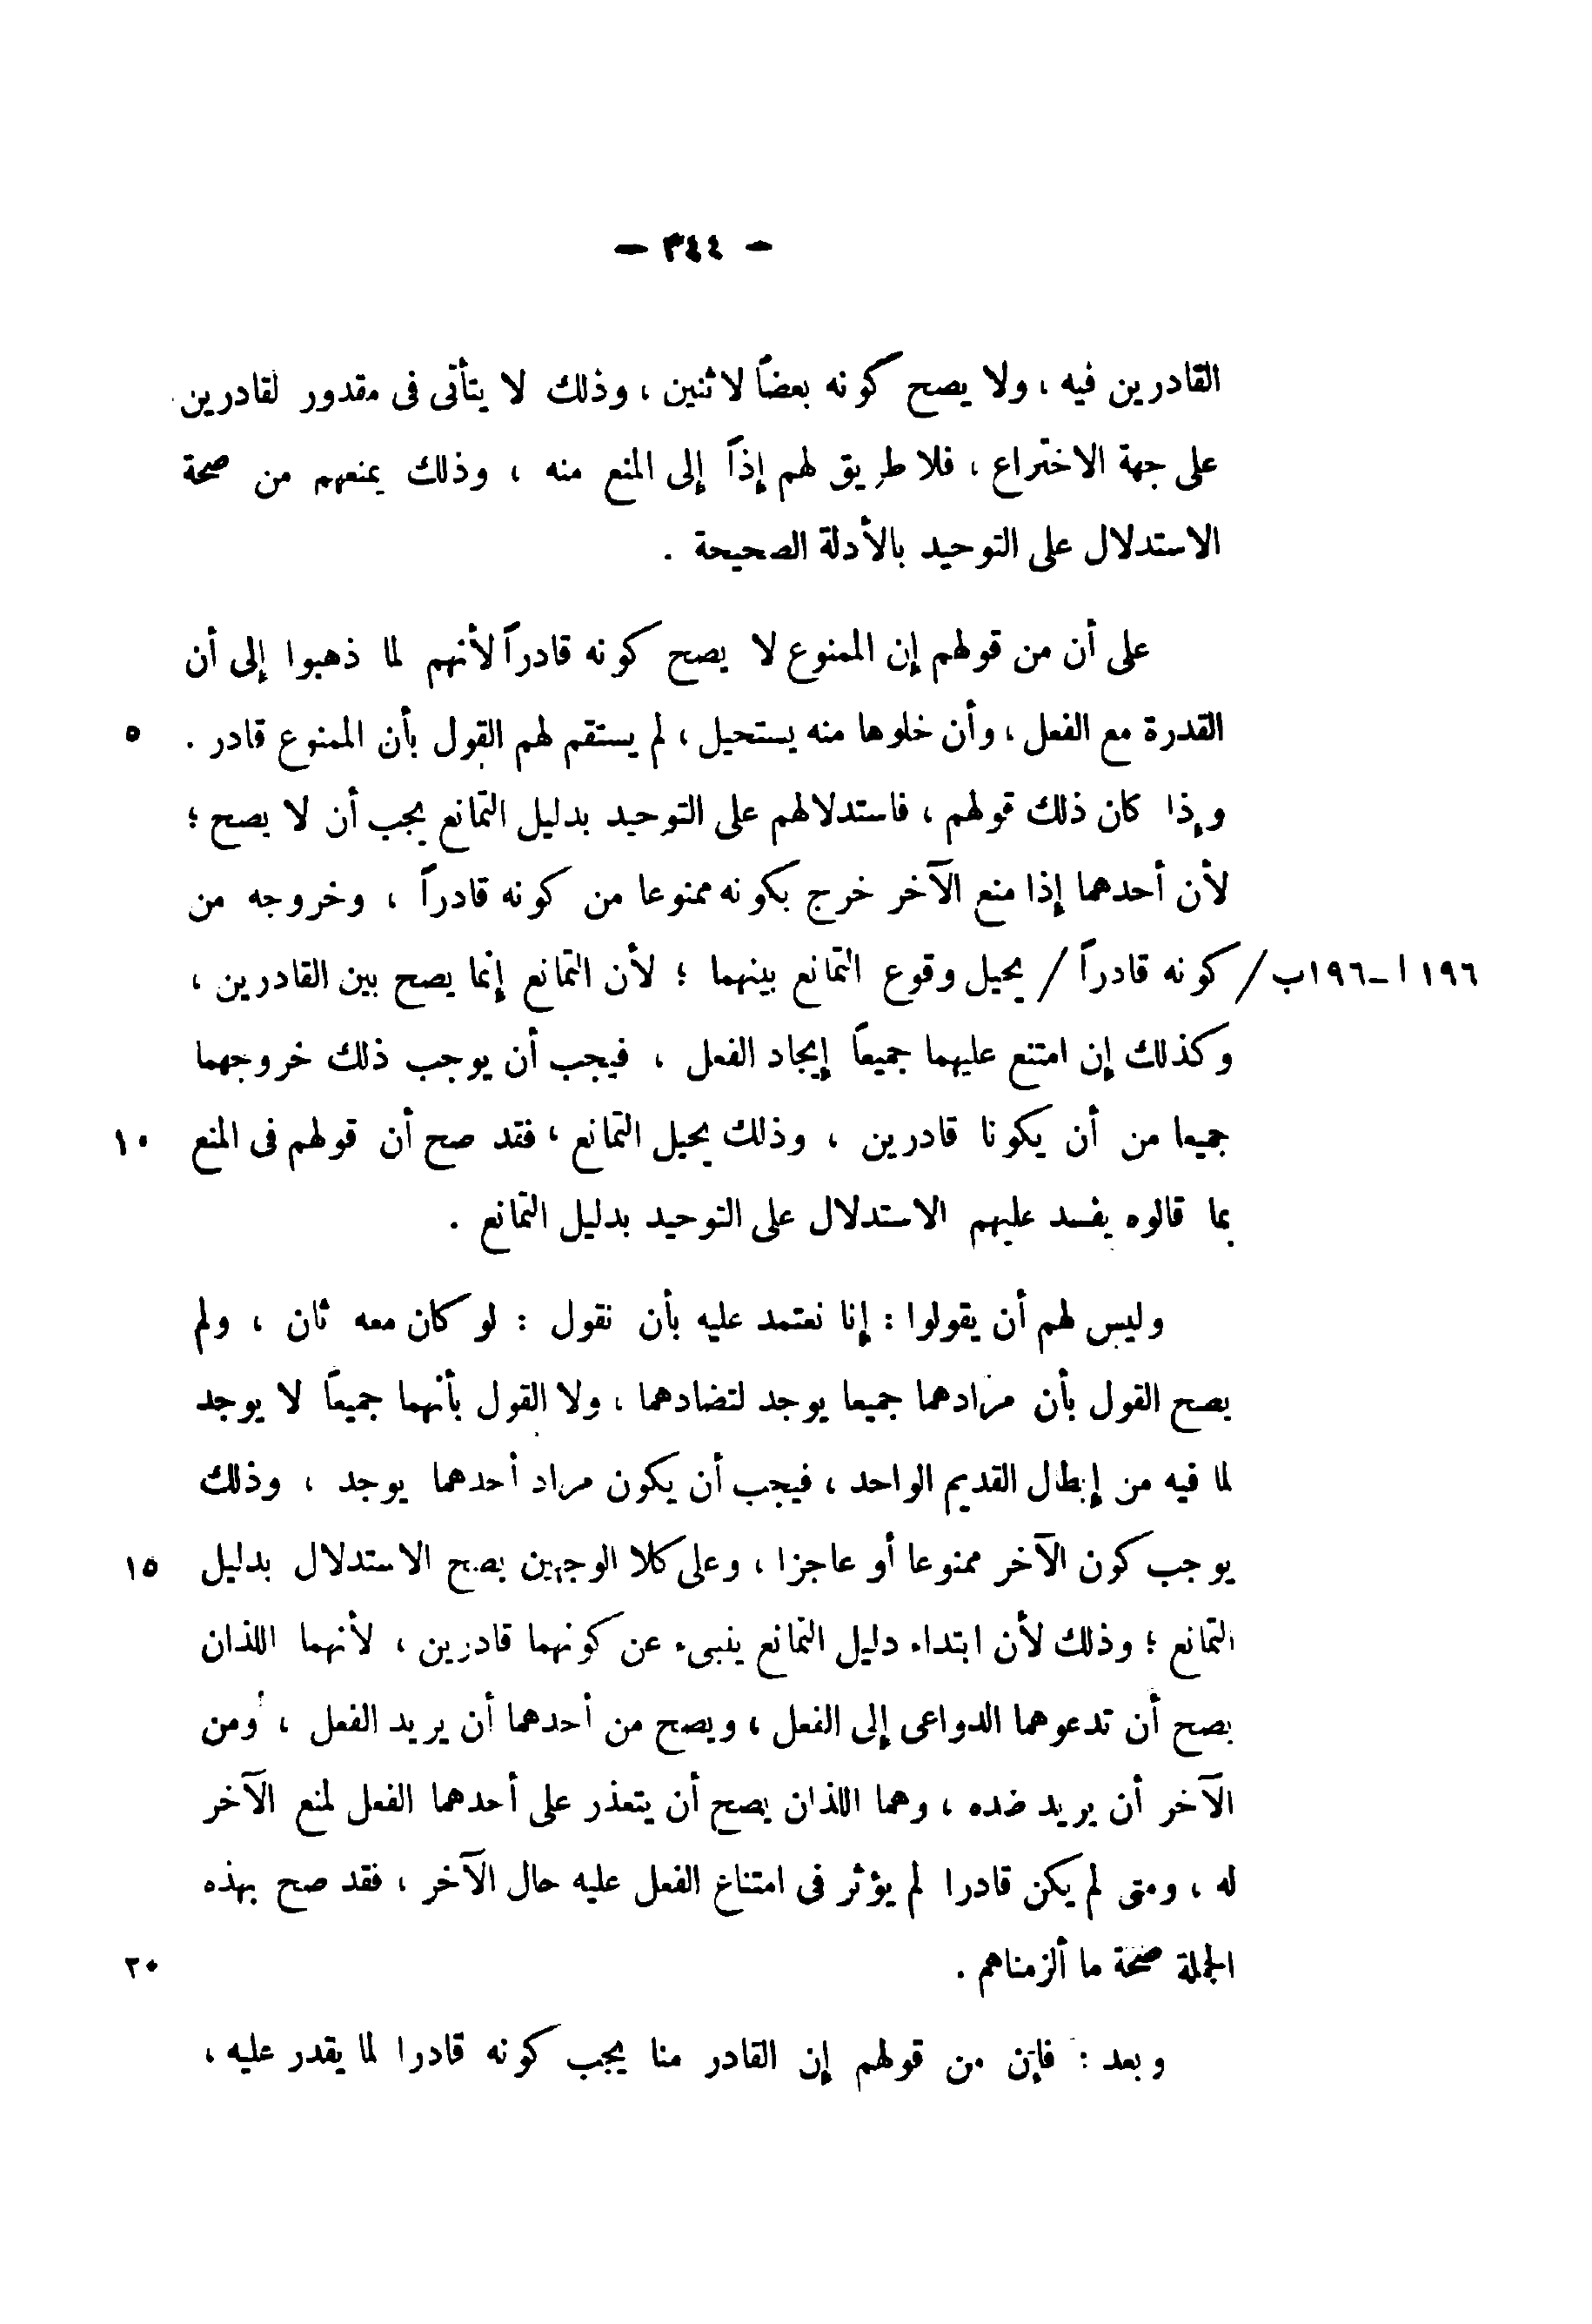 — ٣٤٤ —
القادرين فيه ، ولا يصح كونه بعضاً لاثنين ، وذلك لا يتأتى فى مقدور لقادرين
على جهة الاختراع ، فلا طريق لهم إذاً إلى المنع منه ، وذلك يمنعهم من صحة
الاستدلال على التوحيد بالأدلة الصحيحة .
على أن من قولهم إن الممنوع لا يصح كونه قادراً لأنهم لما ذهبوا إلى أن
القدرة مع الفعل ، وأن خلوها منه يستحيل ، لم يستقم لهم القول بأن الممنوع قادر . ٥
وإذا كان ذلك قولهم ، فاستدلالهم على التوحيد بدليل التمانع يجب أن لا يصح ؛
لأن أحدهما إذا منع الآخر خرج بكونه ممنوعا من كونه قادراً ، وخروجه من
١٩٦ ا ــ ١٩٦ب / كونه قادراً / يحيل وقوع التمانع بينهما ؛ لأن التمانع إنما يصح بين القادرين ،
وكذلك إن امتنع عليهما جميعاً إيجاد الفعل ، فيجب أن يوجب ذلك خروجهما
جميعا من أن يكونا قادرين ، وذلك يحيل التمانع ، فقد صح أن قولهم فى المنع ١٠
بما قالوه يفسد عليهم الاستدلال على التوحيد بدليل التمانع .
وليس لهم أن يقولوا : إنا نعتمد عليه بأن نقول : لو كان معه ثان ، ولم
يصح القول بأن مرادهما جميعا يوجد لتضادهما ، ولا القول بأنهما جميعاً لا يوجد
لما فيه من إبطال القديم الواحد ، فيجب أن يكون مراد أحدهما يوجد ، وذلك
يوجب كون الآخر ممنوعا أو عاجزا ، وعلى كلا الوجهين يصح الاستدلال بدليل ١٥
التمانع ؛ وذلك لأن ابتداء دليل التمانع ينبىء عن كونهما قادرين ، لأنهما اللذان
يصح أن تدعوهما الدواعى إلى الفعل ، ويصح من أحدهما أن يريد الفعل ، ومن
الآخر أن يريد ضده ، وهما اللذان يصح أن يتعذر على أحدهما الفعل لمنع الآخر
له ، ومتى لم يكن قادرا لم يؤثر فى امتناع الفعل عليه حال الآخر ، فقد صح بهذه
الجملة صحة ما ألزمناهم . ٢٠
وبعد : فإن من قولهم إن القادر منا يجب كونه قادرا لما يقدر عليه ،